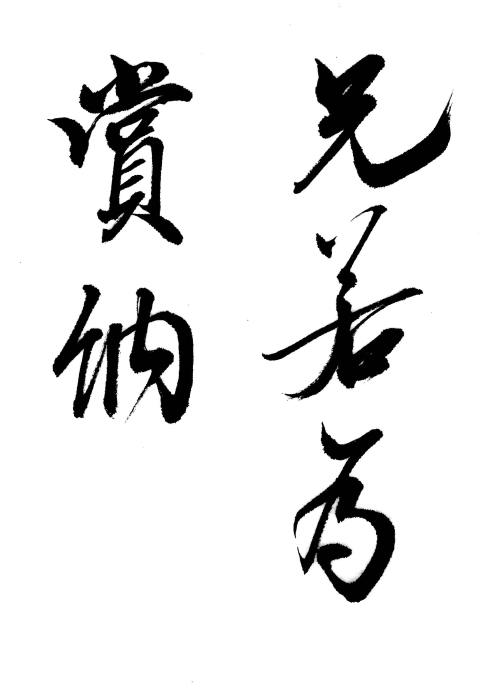 兄若為
賞納